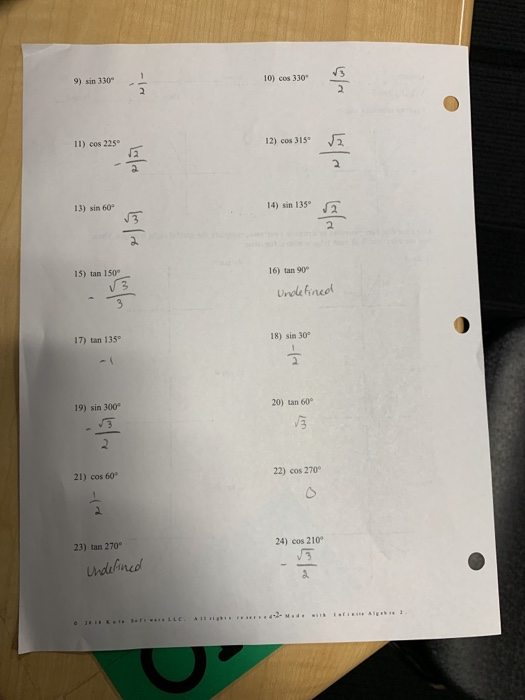 9) sin 330° -1/2
10) cos 330° √3/2
11) cos 225° -√2/2
12) cos 315° √2/2
13) sin 60° √3/2
14) sin 135° √2/2
15) tan 150° -√3/3
16) tan 90° Undefined
17) tan 135° -1
18) sin 30° 1/2
19) sin 300° -√3/2
20) tan 60° √3
21) cos 60° 1/2
22) cos 270° 0
23) tan 270° Undefined
24) cos 210° -√3/2
-2- Made with Infinite Algebra 2